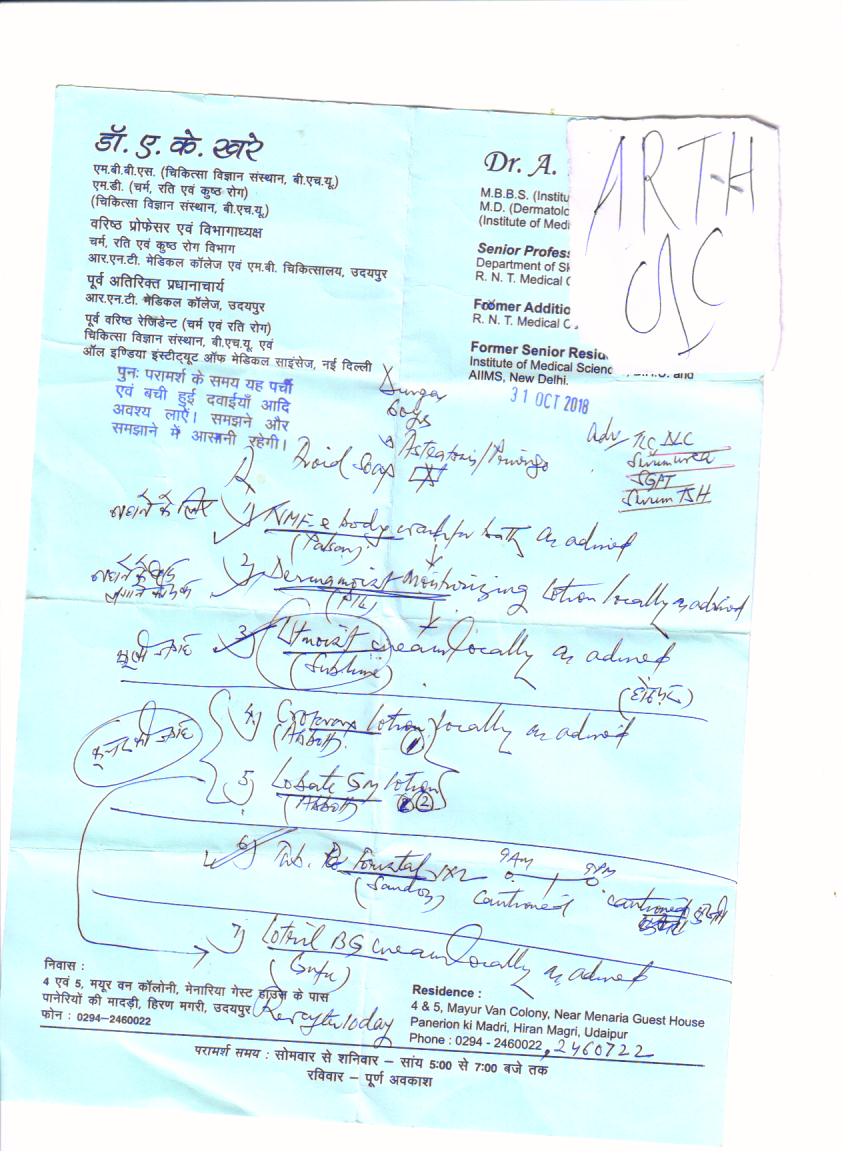 डॉ. ए. के. खरे
एम.बी.बी.एस. (चिकित्सा विज्ञान संस्थान, बी.एच.यू.)
एम.डी. (चर्म, रति एवं कुष्ठ रोग)
(चिकित्सा विज्ञान संस्थान, बी.एच.यू.)
वरिष्ठ प्रोफेसर एवं विभागाध्यक्ष
चर्म, रति एवं कुष्ठ रोग विभाग
आर.एन.टी. मेडिकल कॉलेज एवं एम.बी. चिकित्सालय, उदयपुर
पूर्व अतिरिक्त प्रधानाचार्य
आर.एन.टी. मेडिकल कॉलेज, उदयपुर
पूर्व वरिष्ठ रेजिडेन्ट (चर्म एवं रति रोग)
चिकित्सा विज्ञान संस्थान, बी.एच.यू. एवं
ऑल इण्डिया इंस्टीट्यूट ऑफ मेडिकल साइंसेज, नई दिल्ली
पुनः परामर्श के समय यह पर्ची
एवं बची हुई दवाईयाँ आदि
अवश्य लाऐं। समझने और
समझाने में आसानी रहेगी।
Dr. A.
M.B.B.S. (Institu
M.D. (Dermatolo
(Institute of Medi
Senior Profess
Department of Sk
R. N. T. Medical C
Former Additio
R. N. T. Medical C
Former Senior Resid
Institute of Medical Scienc and
AIIMS, New Delhi.
ARTH
31 OCT 2018
Adv TLC DLC
Serum urea
SGPT
Serum TSH
Avoid Soap
नहाने के लिए 1) NMF-e body wash for bath as advised
2) Dermamoist Moisturizing Lotion locally as advised
3) Utmoist cream locally as advised
(Sublime)
4) Lotion locally as advised
(Abbott) 1
5) Lobate GM lotion
(Abbott) 2
6) Tab.
9 AM 9 PM
(Sandoz) cautioned
7) Lotril BG cream locally as advised
निवास :
4 एवं 5, मयूर वन कॉलोनी, मेनारिया गेस्ट हाउस के पास
पानेरियों की मादड़ी, हिरण मगरी, उदयपुर
फोन : 0294-2460022
Residence :
4 & 5, Mayur Van Colony, Near Menaria Guest House
Panerion ki Madri, Hiran Magri, Udaipur
Phone : 0294 - 2460022, 2460722
परामर्श समय : सोमवार से शनिवार – सांय 5:00 से 7:00 बजे तक
रविवार – पूर्ण अवकाश